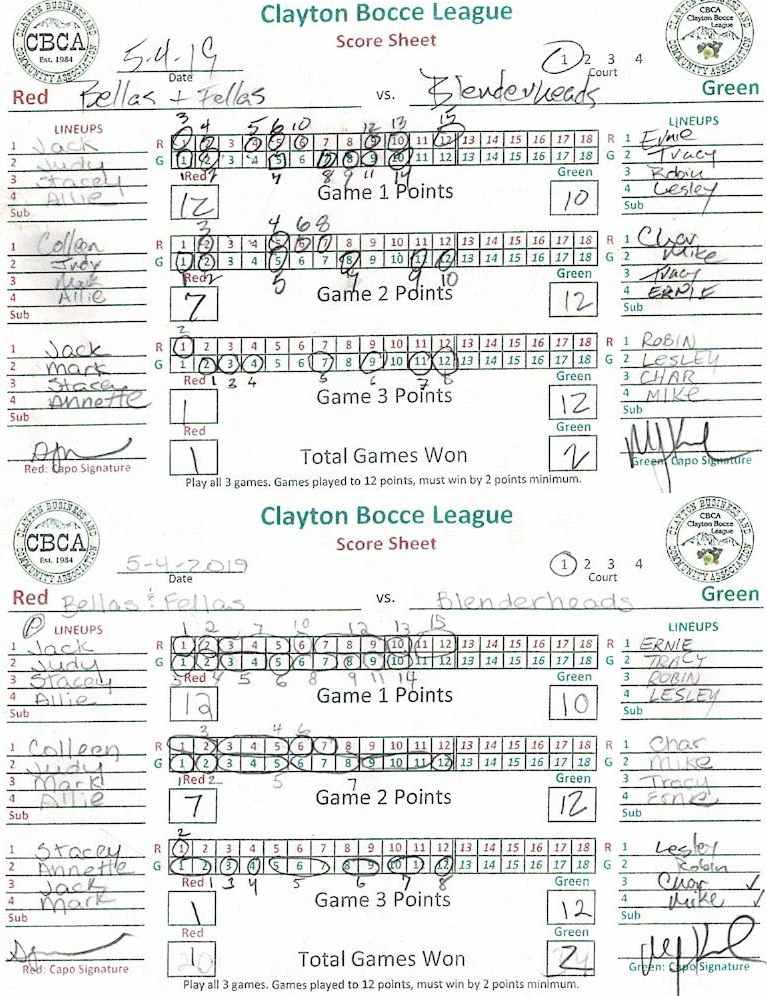 Clayton Bocce League
Score Sheet
CBCA
Est. 1984
CLAYTON BUSINESS AND COMMUNITY ASSOCIATION
CBCA
Clayton Bocce League
5-4-19
Date
1 2 3 4
Court
Red Bellas + Fellas vs. Blenderheads Green
3 4 5 6 10 12 13 15
LINEUPS LINEUPS
1 Jack R 1 2 3 4 5 6 7 8 9 10 11 12 13 14 15 16 17 18 R 1 Ernie
2 Judy G 1 2 3 4 5 6 7 8 9 10 11 12 13 14 15 16 17 18 G 2 Tracy
3 Stacey Red Green 3 Robin
4 Allie 12 Game 1 Points 10 4 Lesley
Sub Sub
3 4 6 8
1 Colleen R 1 2 3 4 5 6 7 8 9 10 11 12 13 14 15 16 17 18 R 1 Char
2 Judy G 1 2 3 4 5 6 7 8 9 10 11 12 13 14 15 16 17 18 G 2 Mike
3 Mark Red Green 3 Tracy
4 Allie 7 Game 2 Points 12 4 ERNIE
Sub Sub
2
1 Jack R 1 2 3 4 5 6 7 8 9 10 11 12 13 14 15 16 17 18 R 1 ROBIN
2 Mark G 1 2 3 4 5 6 7 8 9 10 11 12 13 14 15 16 17 18 G 2 LESLEY
3 Stacey Red 1 3 4 5 6 7 8 Green 3 CHAR
4 Annette 1 Game 3 Points 12 4 MIKE
Sub Sub
Red Green
1 Total Games Won 2
Red: Capo Signature Green: Capo Signature
Play all 3 games. Games played to 12 points, must win by 2 points minimum.
Clayton Bocce League
Score Sheet
CBCA
Est. 1984
CLAYTON BUSINESS AND COMMUNITY ASSOCIATION
CBCA
Clayton Bocce League
5-4-2019
Date
1 2 3 4
Court
Red Bellas & Fellas vs. Blenderheads Green
P 1 2 7 10 12 13 15
LINEUPS LINEUPS
1 Jack R 1 2 3 4 5 6 7 8 9 10 11 12 13 14 15 16 17 18 R 1 ERNIE
2 Judy G 1 2 3 4 5 6 7 8 9 10 11 12 13 14 15 16 17 18 G 2 TRACY
3 Stacey Red 4 5 6 8 9 11 14 Green 3 ROBIN
4 Allie 12 Game 1 Points 10 4 LESLEY
Sub Sub
3 4 6
1 Colleen R 1 2 3 4 5 6 7 8 9 10 11 12 13 14 15 16 17 18 R 1 Char
2 Judy G 1 2 3 4 5 6 7 8 9 10 11 12 13 14 15 16 17 18 G 2 Mike
3 Mark 1 Red 2 5 7 Green 3 Tracy
4 Allie 7 Game 2 Points 12 4 Ernie
Sub Sub
2
1 Stacey R 1 2 3 4 5 6 7 8 9 10 11 12 13 14 15 16 17 18 R 1 Lesley
2 Annette G 1 2 3 4 5 6 7 8 9 10 11 12 13 14 15 16 17 18 G 2 Robin
3 Jack Red 1 3 4 5 6 7 8 Green 3 Char ✓
4 Mark 1 Game 3 Points 12 4 Mike ✓
Sub Sub
Red Green
1 Total Games Won 2
Red: Capo Signature Green: Capo Signature
Play all 3 games. Games played to 12 points, must win by 2 points minimum.